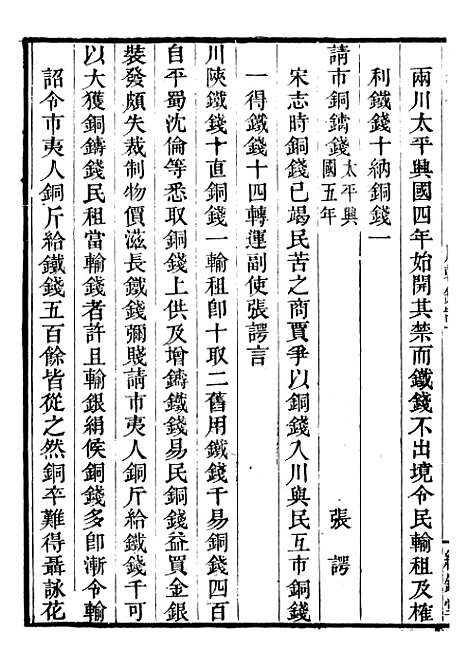 兩川太平興國四年始開其禁而鐵錢不出境令民輸租及榷
利鐵錢十納銅錢一
請市銅鑄錢太平興國五年　張諤
宋志時銅錢已竭民苦之商賈爭以銅錢入川與民互市銅錢
一得鐵錢十四轉運副使張諤言
川陝鐵錢十直銅錢一輸租卽十取二舊用鐵錢千易銅錢四百
自平蜀沈倫等悉取銅錢上供及增鑄鐵錢易民銅錢益買金銀
裝發頗失裁制物價滋長鐵錢彌賤請市夷人銅斤給鐵錢千可
以大獲銅鑄錢民租當輸錢者許且輸銀絹俟銅錢多卽漸令輸
詔令市夷人銅斤給鐵錢五百餘皆從之然銅卒難得聶詠花